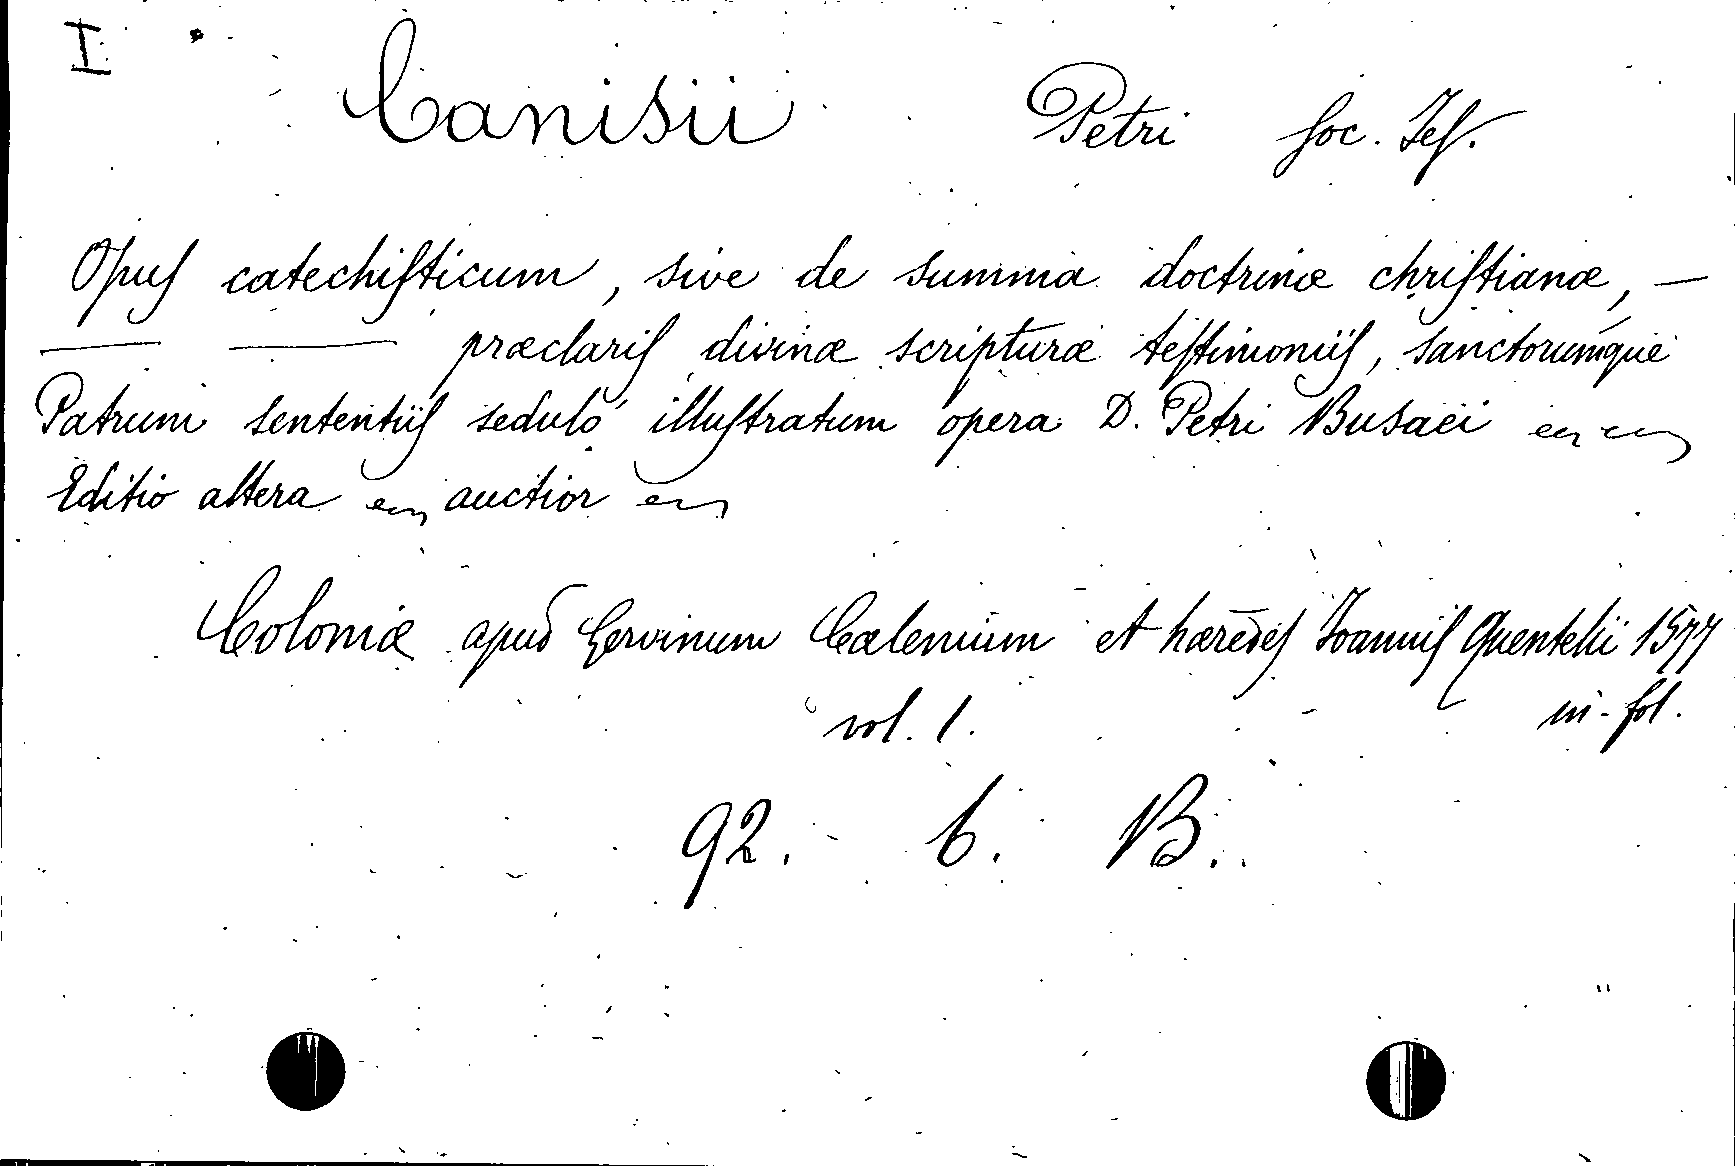 I
Canisii Petri Soc. Jes.
Opus catechisticum, sive de summa doctrinæ christianæ, —
— — præclaris divinæ scripturæ testimoniis, sanctorumque
Patrum sententiis seduló illustratum opera D. Petri Busaei
Editio altera auctior
Coloniæ apud Gervinum Calenium et hæredes Joannis Quentelii 1577
vol. 1. in-fol.
92. 6. B.